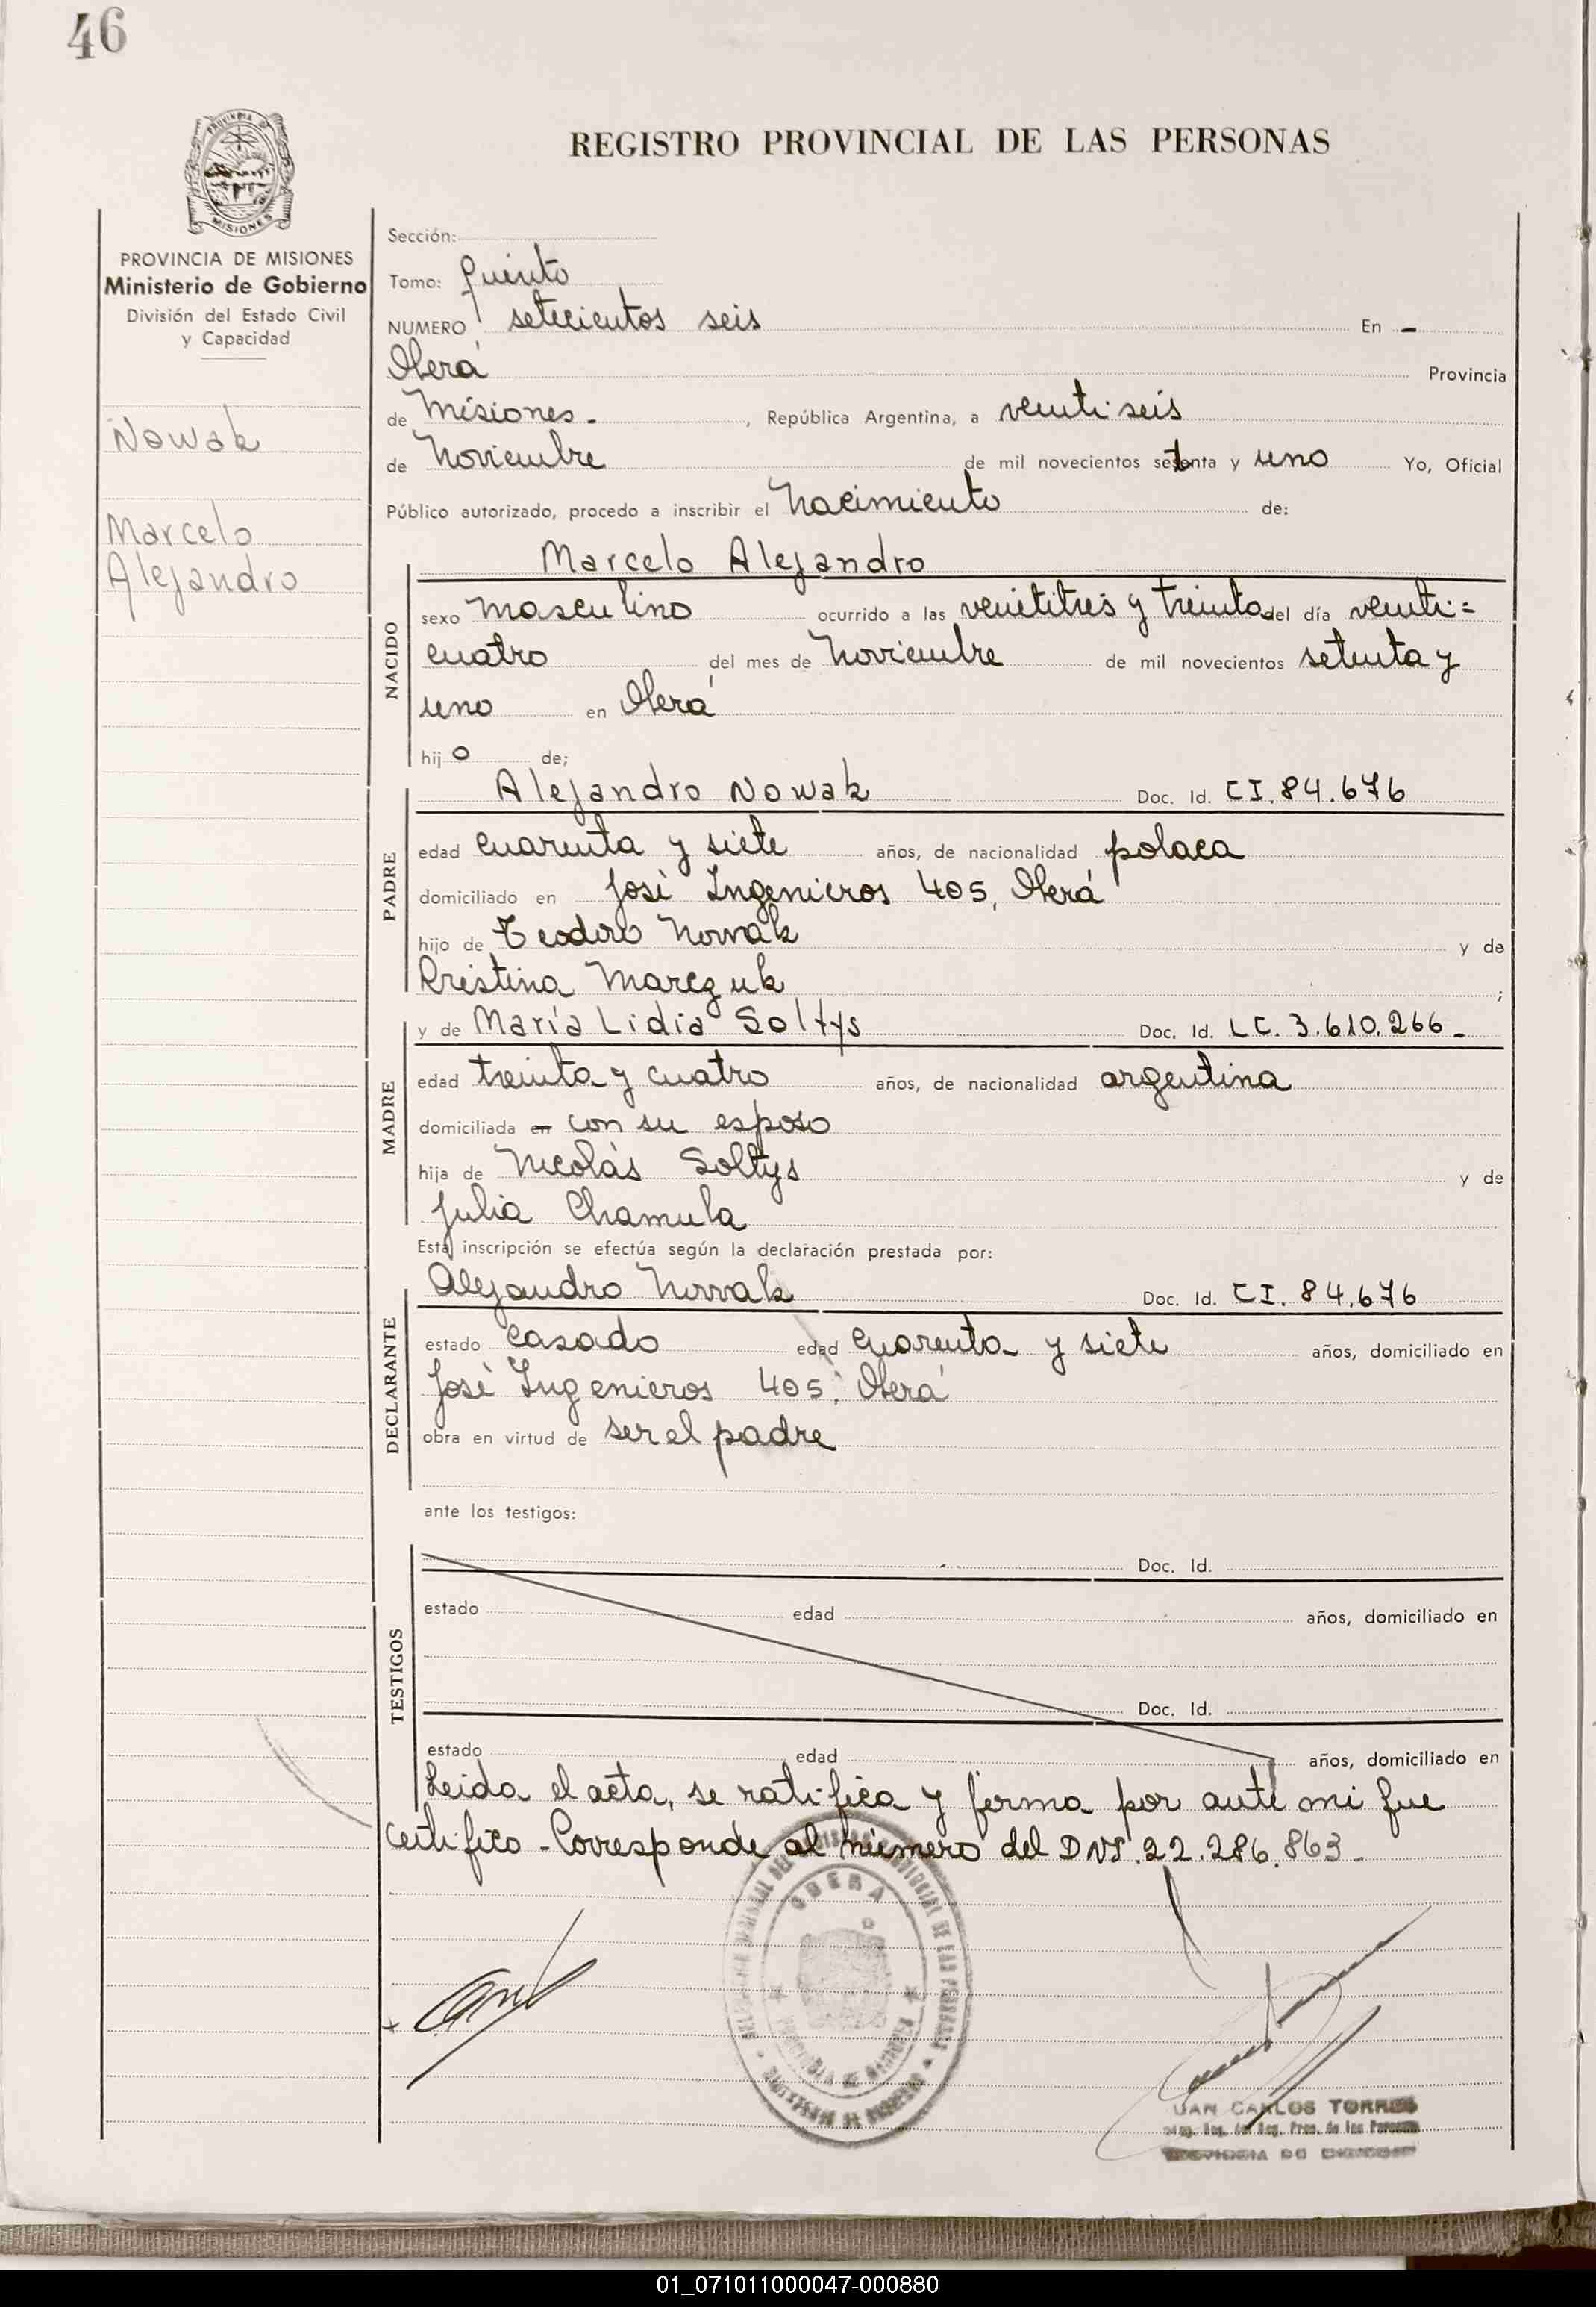 46
REGISTRO PROVINCIAL DE LAS PERSONAS
MISIONES
PROVINCIA DE MISIONES
Ministerio de Gobierno
División del Estado Civil
y Capacidad
Nowak
Marcelo
Alejandro
Sección:
Tomo: Quinto
NUMERO setecientos seis En -
Oberá Provincia
de Misiones. , República Argentina, a veinti seis
de Noviembre de mil novecientos setenta y uno Yo, Oficial
Público autorizado, procedo a inscribir el Nacimiento de:
NACIDO
Marcelo Alejandro
sexo masculino ocurrido a las veintitres y treinta del día veinti=
cuatro del mes de Noviembre de mil novecientos setenta y
uno en Oberá
hijo de;
PADRE
Alejandro Nowak Doc. Id. CI. 84.676
edad cuarenta y siete años, de nacionalidad polaca
domiciliado en José Ingenieros 405, Oberá
hijo de Teodoro Nowak y de
Kristina Marczuk ;
MADRE
y de María Lidia Soltys Doc. Id. LC. 3.610.266.
edad treinta y cuatro años, de nacionalidad argentina
domiciliada en con su esposo
hija de Nicolás Soltys y de
Julia Chamula
Esta inscripción se efectúa según la declaración prestada por:
DECLARANTE
Alejandro Nowak Doc. Id. CI. 84.676
estado casado edad cuarenta y siete años, domiciliado en
José Ingenieros 405, Oberá
obra en virtud de ser el padre
ante los testigos:
TESTIGOS
Doc. Id.
estado edad años, domiciliado en
Doc. Id.
estado edad años, domiciliado en
Leida el acta, se ratifica y firma por ante mi que
certifico - Corresponde al número del DNI. 22.286.863-
OBERA
JUAN CARLOS TORRES
01_071011000047-000880